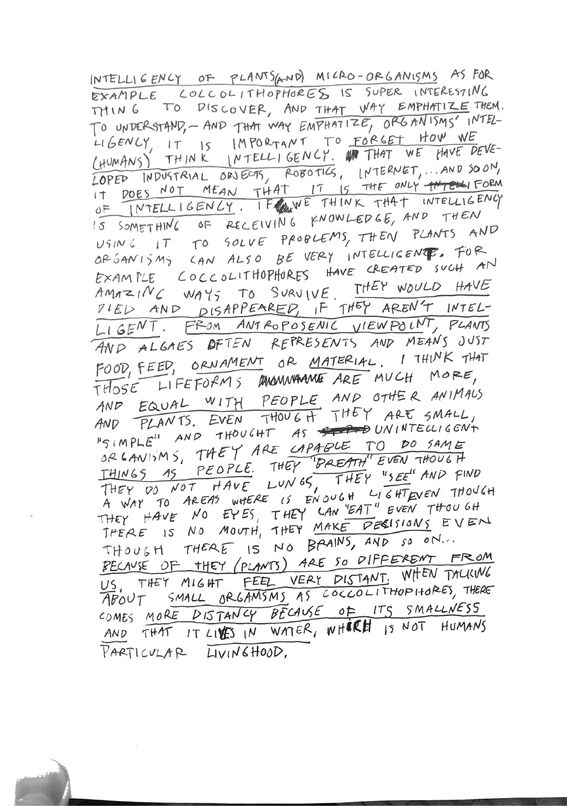 INTELLIGENCY OF PLANTS(AND) MICRO-ORGANISMS AS FOR
EXAMPLE COCCOLITHOPHORES IS SUPER INTERESTING
THING TO DISCOVER, AND THAT WAY EMPHATIZE THEM.
TO UNDERSTAND,~ AND THAT WAY EMPHATIZE, ORGANISMS' INTEL-
LIGENCY, IT IS IMPORTANT TO FORGET HOW WE
(HUMANS) THINK INTELLIGENCY. THAT WE HAVE DEVE-
LOPED INDUSTRIAL OBJECTS, ROBOTICS, INTERNET,... AND SO ON,
IT DOES NOT MEAN THAT IT IS THE ONLY INTELLI FORM
OF INTELLIGENCY. IF WE THINK THAT INTELLIGENCY
IS SOMETHING OF RECEIVING KNOWLEDGE, AND THEN
USING IT TO SOLVE PROBLEMS, THEN PLANTS AND
ORGANISMS CAN ALSO BE VERY INTELLIGENT. FOR
EXAMPLE COCCOLITHOPHORES HAVE CREATED SUCH AN
AMAZING WAYS TO SURVIVE. THEY WOULD HAVE
DIED AND DISAPPEARED, IF THEY AREN'T INTEL-
LIGENT. FROM ANTROPOSENIC VIEWPOINT, PLANTS
AND ALGAES OFTEN REPRESENTS AND MEANS JUST
FOOD, FEED, ORNAMENT OR MATERIAL. I THINK THAT
THOSE LIFEFORMS ARE MUCH MORE,
AND EQUAL WITH PEOPLE AND OTHER ANIMALS
AND PLANTS. EVEN THOUGH THEY ARE SMALL,
"SIMPLE" AND THOUGHT AS STUPID UNINTELLIGENT
ORGANISMS, THEY ARE CAPABLE TO DO SAME
THINGS AS PEOPLE. THEY "BREATH" EVEN THOUGH
THEY DO NOT HAVE LUNGS, THEY "SEE" AND FIND
A WAY TO AREAS WHERE IS ENOUGH LIGHT EVEN THOUGH
THEY HAVE NO EYES, THEY CAN "EAT" EVEN THOUGH
THERE IS NO MOUTH, THEY MAKE DECISIONS EVEN
THOUGH THERE IS NO BRAINS, AND SO ON...
BECAUSE OF THEY (PLANTS) ARE SO DIFFERENT FROM
US, THEY MIGHT FEEL VERY DISTANT. WHEN TALKING
ABOUT SMALL ORGAMSMS AS COCCOLITHOPHORES, THERE
COMES MORE DISTANCY BECAUSE OF ITS SMALLNESS
AND THAT IT LIVES IN WATER, WHICH IS NOT HUMANS
PARTICULAR LIVINGHOOD.